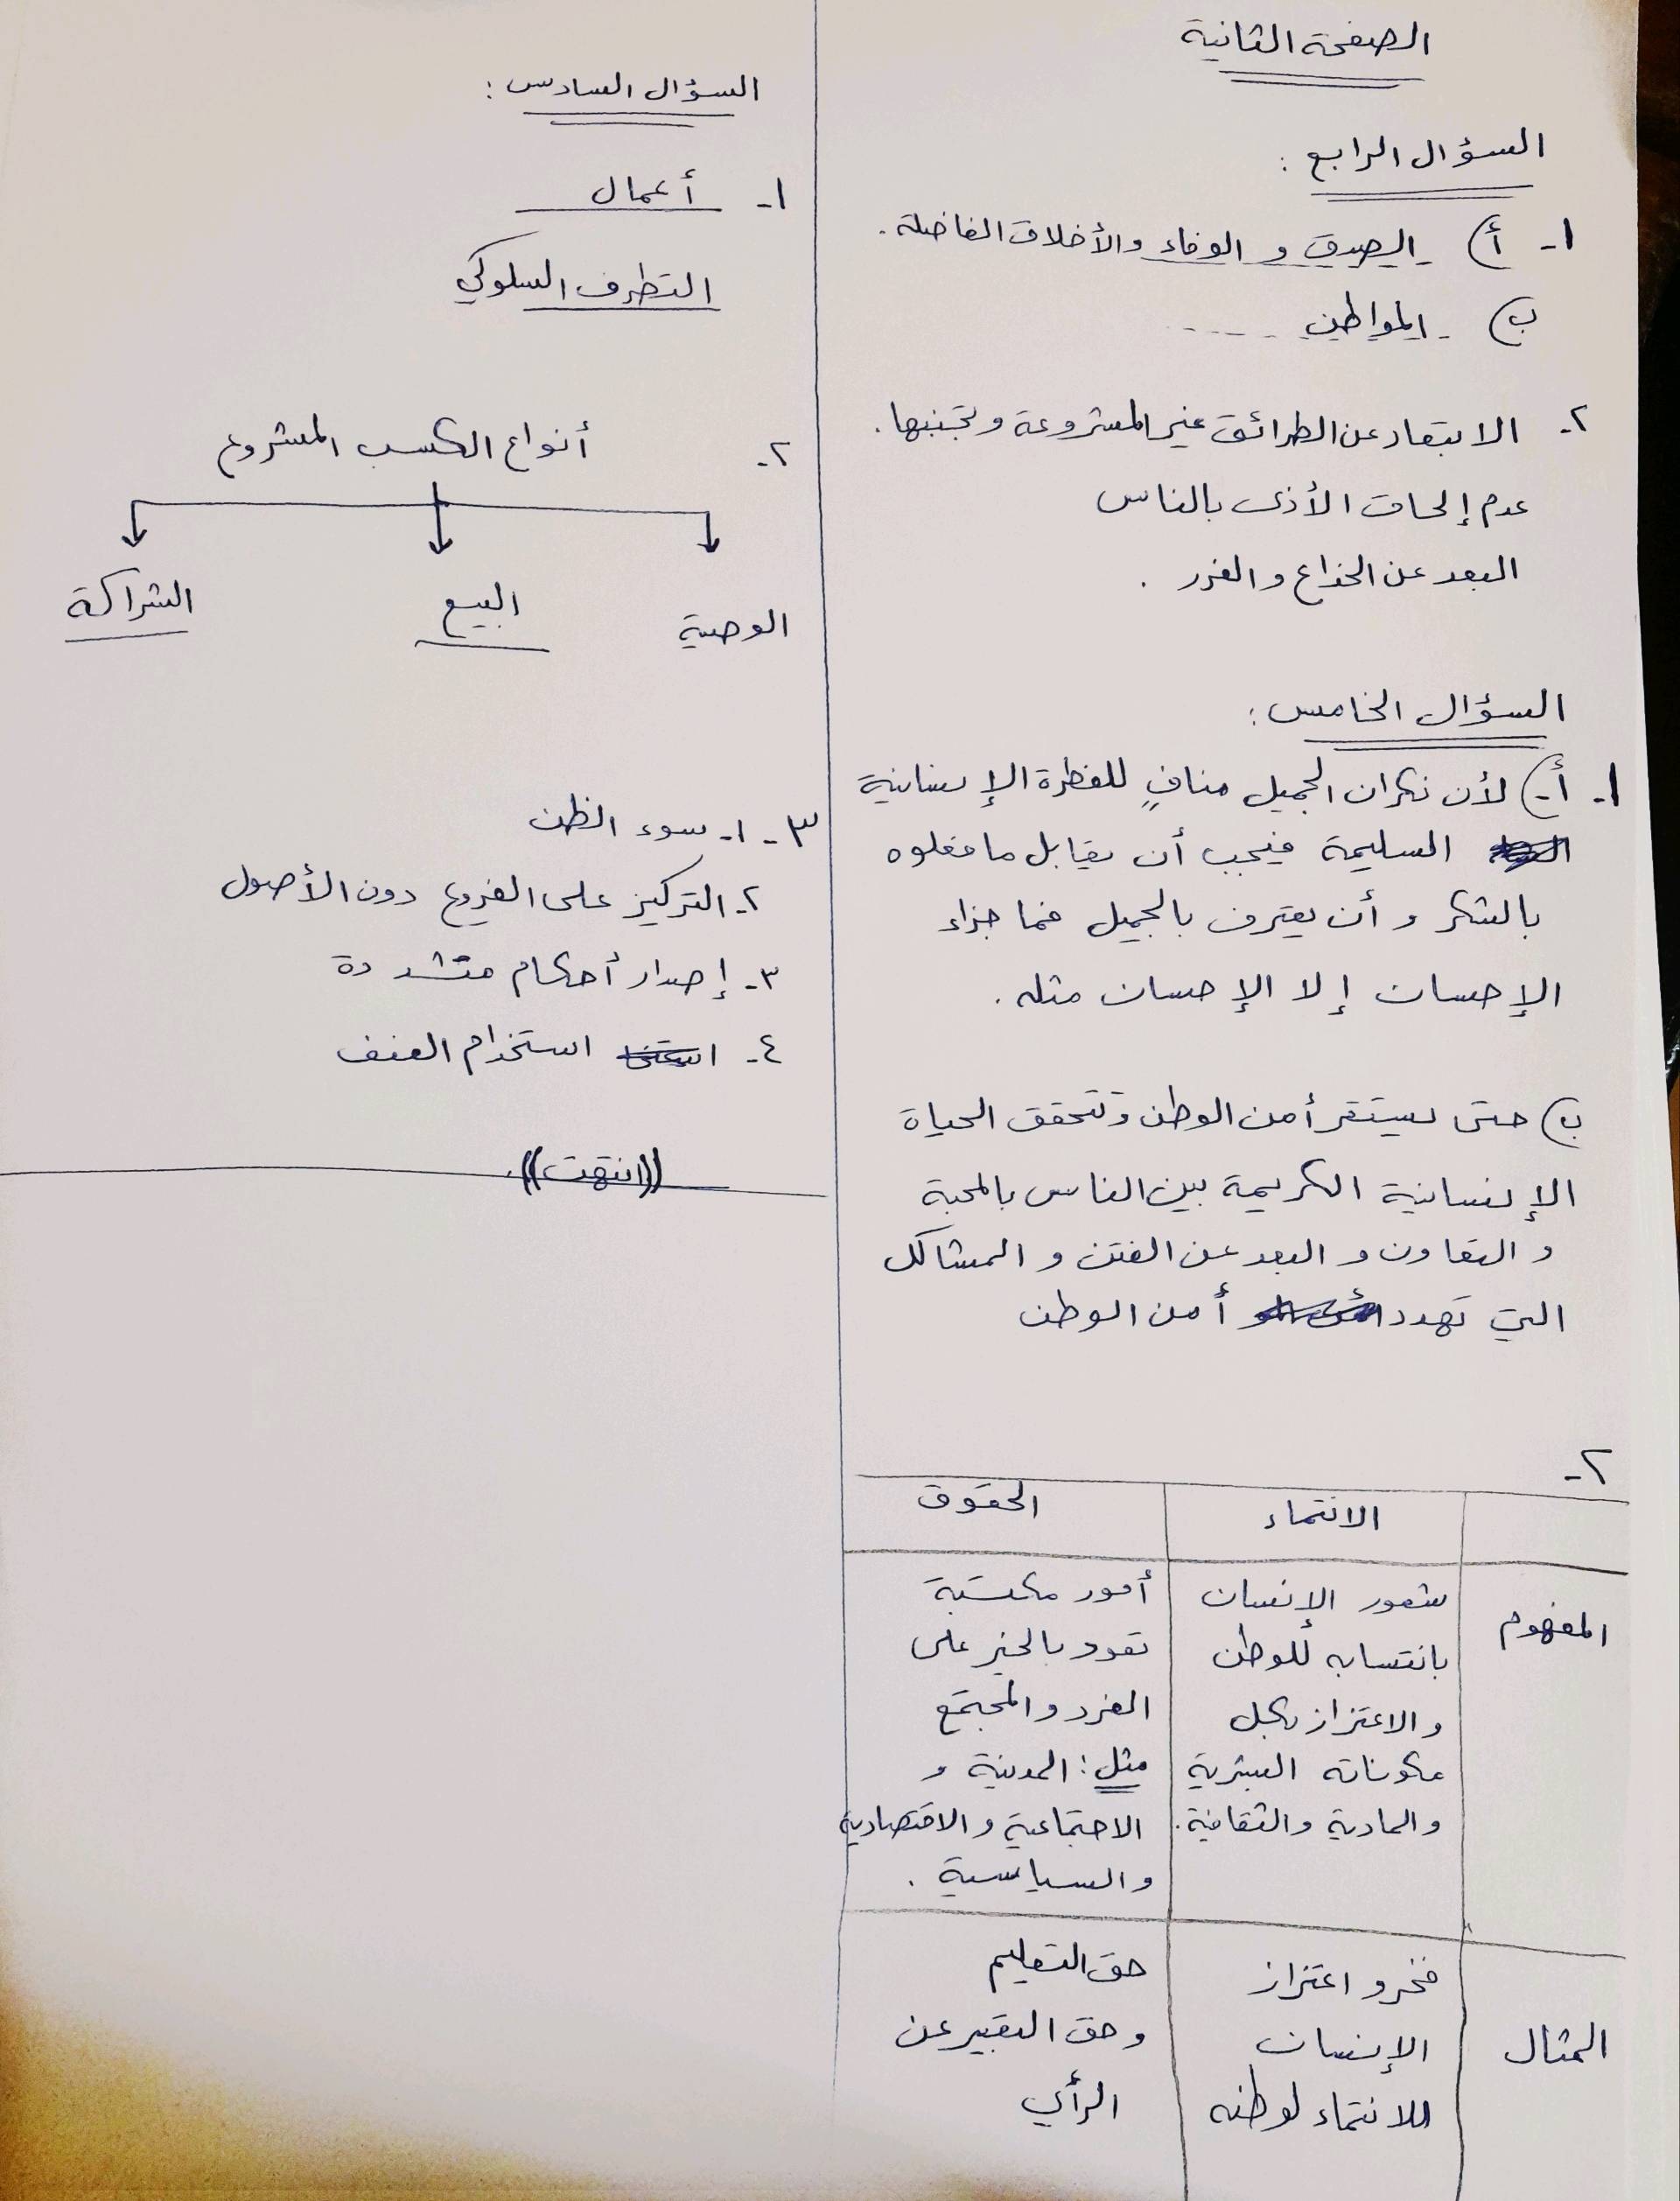 الصفحة الثانية
السؤال الرابع :
١- أ) الصدق و الوفاء والأخلاق الفاضلة .
ب) المواطن
٢- الابتعاد عن الطرائق غير المشروعة وتجنبها .
عدم إلحاق الأذى بالناس
البعد عن الخداع و الغرر .
السؤال الخامس :
١- أ-) لأن نكران الجميل منافٍ للفطرة الإنسانية
السليمة فيجب أن يقابل ما فعلوه
بالشكر و أن يعترف بالجميل فما جزاء
الإحسان إلا الإحسان مثله .
ب) حتى يستقر أمن الوطن وتتحقق الحياة
الإنسانية الكريمة بين الناس بالمحبة
و التعاون و البعد عن الفتن و المشاكل
التي تهدد أمن الوطن
٢-
الانتماء الحقوق
المفهوم
شعور الإنسان
بانتسابه للوطن
والاعتزاز بكل
مكوناته البشرية
والمادية والثقافية .
أمور مكتسبة
تعود بالخير على
الفرد والمجتمع
مثل : المدنية و
الاجتماعية و الاقتصادية
والسياسية .
المثال
فخر و اعتزاز
الإنسان
للانتماء لوطنه
حق التعليم
وحق التعبير عن
الرأي
السؤال السادس :
١- أعمال
التطرف السلوكي
٢- أنواع الكسب المشروع
الوصية البيع الشراكة
٣- ١- سوء الظن
٢- التركيز على الفروع دون الأصول
٣- إصدار أحكام متشددة
٤- استخدام العنف
((انتهت))